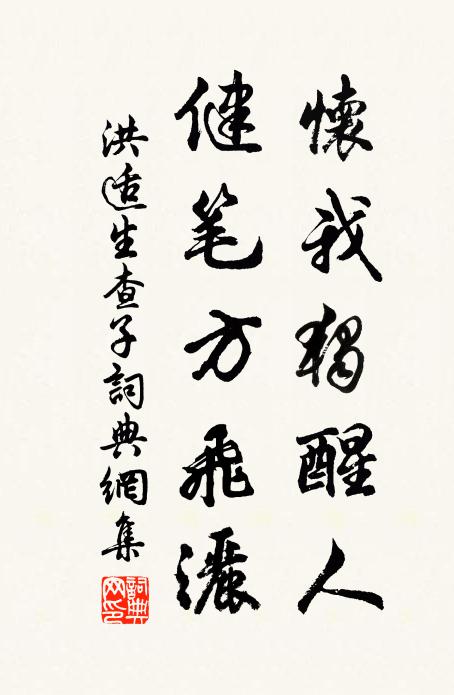 懷我獨醒人
健笔方飛灑
洪适生查子詞典網集
詞典網印